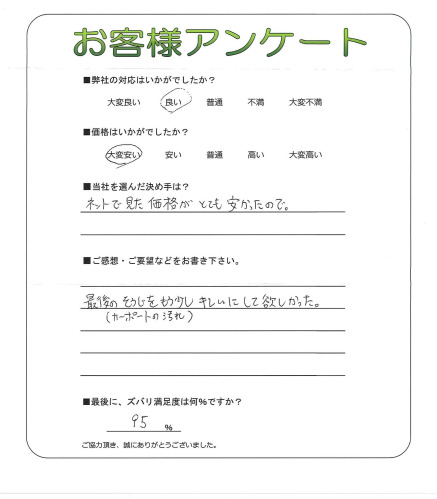 お客様アンケート
■弊社の対応はいかがでしたか？
大変良い 良い 普通 不満 大変不満
■価格はいかがでしたか？
大変安い 安い 普通 高い 大変高い
■当社を選んだ決め手は？
ネットで見た価格がとても安かったので。
■ご感想・ご要望などをお書き下さい。
最後のそうじをもう少しキレイにして欲しかった。
(カーポートの汚れ)
■最後に、ズバリ満足度は何%ですか？
95 %
ご協力頂き、誠にありがとうございました。